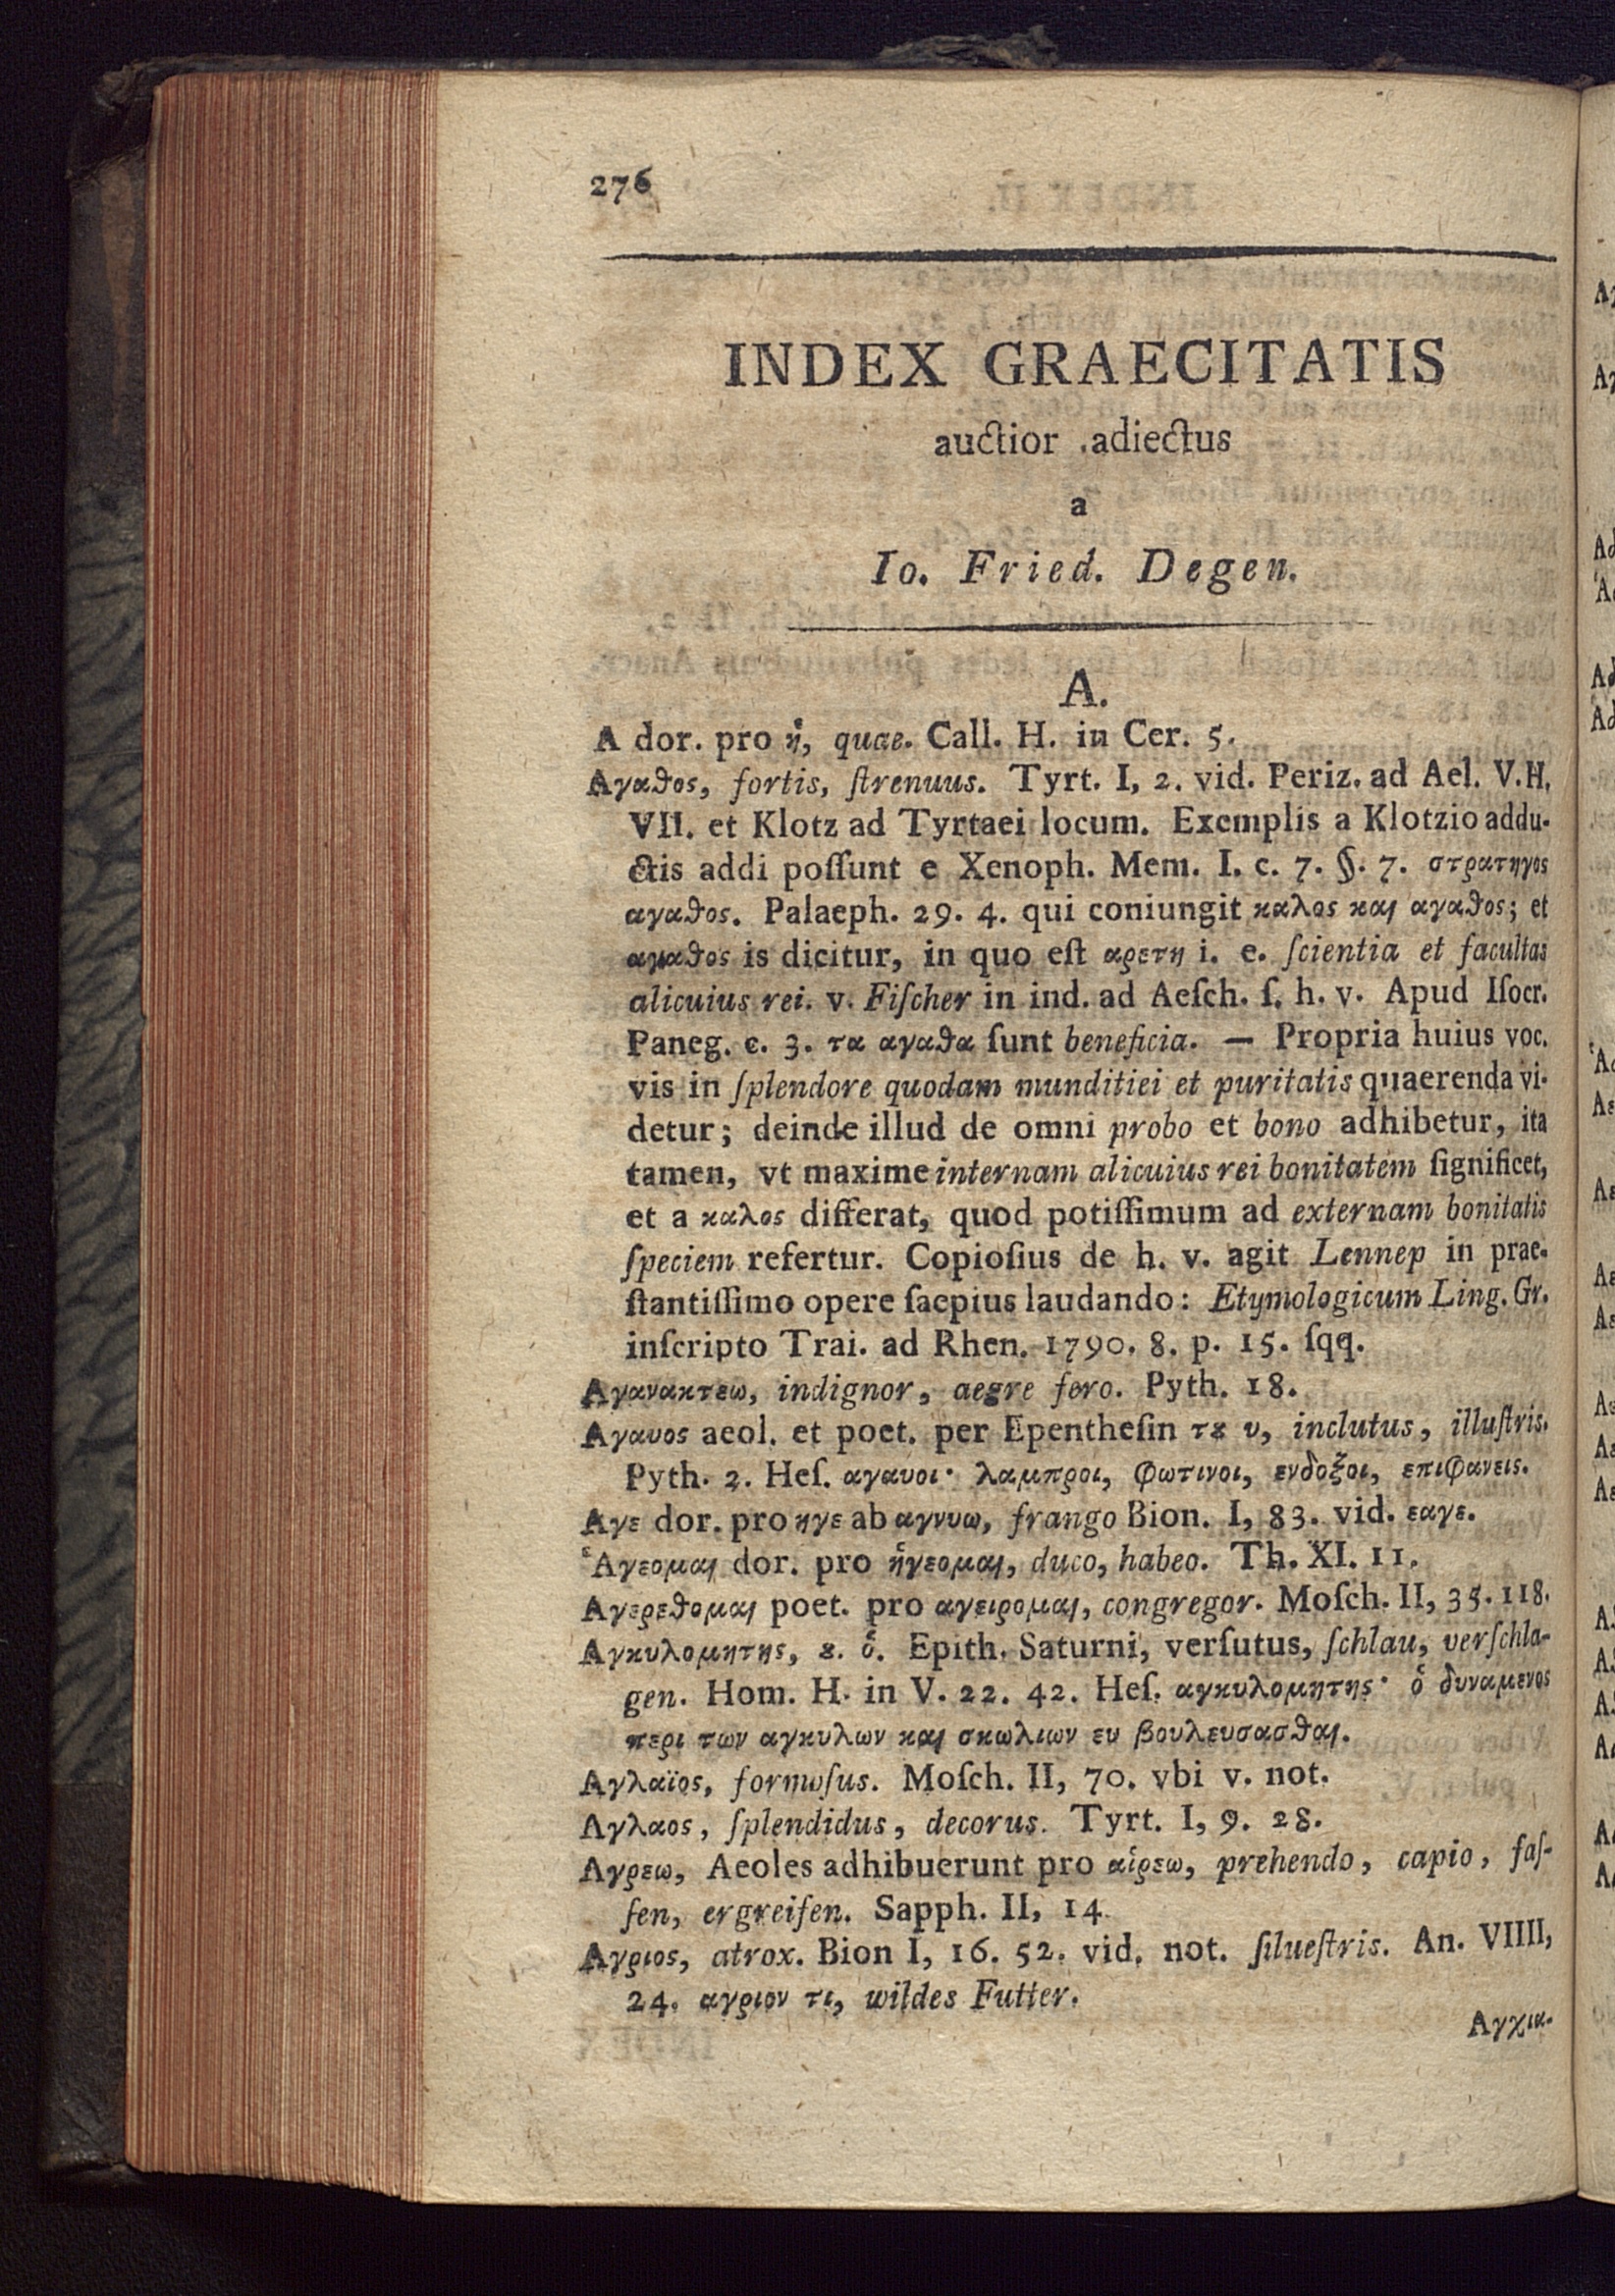 276
INDEX GRAECITATIS
auctior adiectus
a
Io. Fried. Degen.
A.
A dor. pro ἡ, quae. Call. H. in Cer. 5.
Αγαθος, fortis, ſtrenuus. Tyrt. I, 2. vid. Periz. ad Ael. V. H.
VII. et Klotz ad Tyrtaei locum. Exemplis a Klotzio addu-
ctis addi poſſunt e Xenoph. Mem. I. c. 7. §. 7. στρατηγος
αγαθος. Palaeph. 29. 4. qui coniungit καλος και αγαθος; et
αγαθος is dicitur, in quo eſt αρετη i. e. ſcientia et facultas
alicuius rei. v. Fiſcher in ind. ad Aeſch. ſ. h. v. Apud Iſocr.
Paneg. c. 3. τα αγαθα ſunt beneficia. — Propria huius voc.
vis in ſplendore quodam munditiei et puritatis quaerenda vi-
detur; deinde illud de omni probo et bono adhibetur, ita
tamen, vt maxime internam alicuius rei bonitatem ſignificet,
et a καλος differat, quod potiſſimum ad externam bonitatis
ſpeciem refertur. Copioſius de h. v. agit Lennep in prae-
ſtantiſſimo opere ſaepius laudando: Etymologicum Ling. Gr.
inſcripto Trai. ad Rhen. 1790. 8. p. 15. ſqq.
Αγανακτεω, indignor, aegre fero. Pyth. 18.
Αγαυος aeol. et poet. per Epentheſin τȣ υ, inclutus, illuſtris.
Pyth. 2. Heſ. αγαυοι· λαμπροι, φωτινοι, ενδοξοι, επιφανεις.
Αγε dor. pro ηγε ab αγνυω, frango Bion. I, 83. vid. εαγε.
Ἁγεομαι dor. pro ἡγεομαι, duco, habeo. Th. XI. 11.
Αγερεθομαι poet. pro αγειρομαι, congregor. Moſch. II, 35. 118.
Αγκυλομητης, ȣ. ὁ. Epith. Saturni, verſutus, ſchlau, verſchla-
gen. Hom. H. in V. 22. 42. Heſ. αγκυλομητης· ὁ δυναμενος
περι των αγκυλων και σκωλιων ευ βουλευσασθαι.
Αγλαϊος, formoſus. Moſch. II, 70. vbi v. not.
Αγλαος, ſplendidus, decorus. Tyrt. I, 9. 28.
Αγρεω, Aeoles adhibuerunt pro αἱρεω, prehendo, capio, faſ-
ſen, ergreifen. Sapph. II, 14
Αγριος, atrox. Bion I, 16. 52. vid. not. ſilueſtris. An. VIIII,
24. αγριον τι, wildes Futter.
Αγχια-